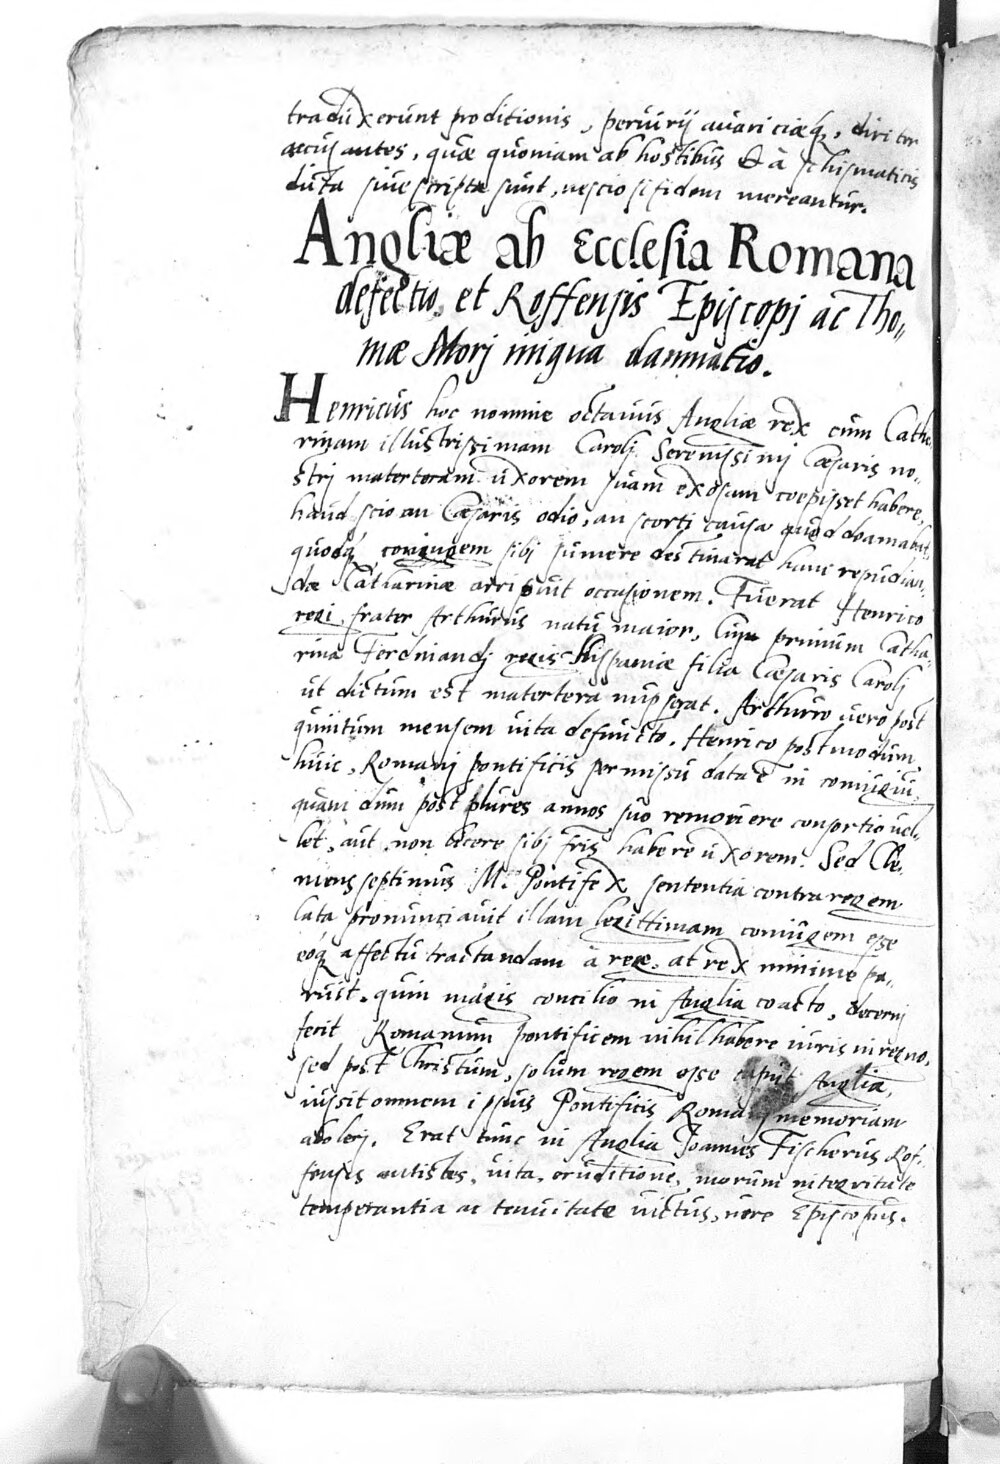 tradūxerūnt proditionis, periurij auariciæq́, diriter
accusantes, quæ quoniam ab hostibus & à schismaticis
dicta siue scripta sunt, nescio si fidem mereantur.
Angliæ ab Ecclesia Romana
defectio, et Roffensis Episcopi ac Tho-
mæ Morj iniqua damnatio.
Henricus hoc nomine octauus Angliæ rex cum Catha-
rinam illustrissimam Carolj Serenissimj Cæsaris no-
strj materteram uxorem suam exosam coepisset habere,
haud scio an Cæsaris odio, an scorti causa quod deamabat,
quodq́ coniugem sibj sumere destinarat hanc repudian-
dæ Catharinæ arripuit occasionem. Fuerat Henrico
regi frater Arthurus natu maior, Cum primum Catha-
rina Ferdinandj regis Hispaniæ filia Cæsaris Carolj
ut dictum est matertera nupserat. Arthuro uero post
quintum mensem uita defuncto, Henrico postmodum
huic, Romanj pontificis permissu data ē in coniugiū,
quam dum post plures annos suo remouere consortio uel-
let, ait non licere sibj fris habere uxorem. Sed Cle-
mens septimus M. Pontifex sententia contra regem
lata pronunciauit illam legittimam coniugem esse
eoq́ affectu tractandam à rege, at rex minime pa-
ruit, quin magis concilio in Anglia coacto, decerni
fecit Romanum pontificem nihil habere iuris in regno,
sed post Christum, solum regem esse caput Angliæ,
iussit omnem ipsius Pontificis Romanj memoriam
abolerj. Erat tunc in Anglia Joannes Fischerus Rof-
fensis antistes, uita, eruditione, morum integritate
temperantia ac tenuitate uictus, uere Episcopus.